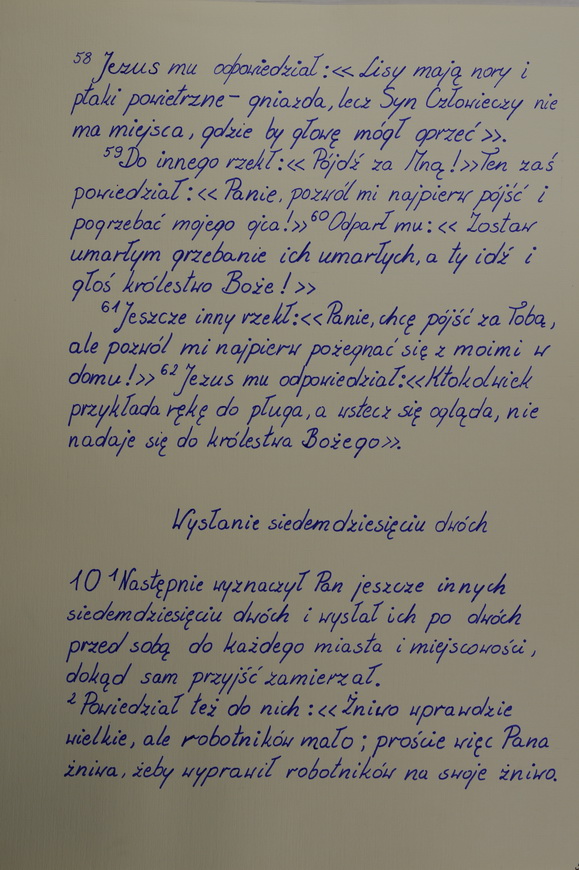 58 Jezus mu odpowiedział: << Lisy mają nory i
ptaki powietrzne - gniazda, lecz Syn Człowieczy nie
ma miejsca, gdzie by głowę mógł oprzeć >>.
59 Do innego rzekł: << Pójdź za Mną! >> Ten zaś
powiedział: << Panie, pozwól mi najpierw pójść i
pogrzebać mojego ojca! >> 60 Odparł mu: << Zostaw
umarłym grzebanie ich umarłych, a ty idź i
głoś królestwo Boże! >>
61 Jeszcze inny rzekł: << Panie, chcę pójść za Tobą,
ale pozwól mi najpierw pożegnać się z moimi w
domu! >> 62 Jezus mu odpowiedział: << Ktokolwiek
przykłada rękę do pługa, a wstecz się ogląda, nie
nadaje się do królestwa Bożego >>.
Wysłanie siedemdziesięciu dwóch
10 1 Następnie wyznaczył Pan jeszcze innych
siedemdziesięciu dwóch i wysłał ich po dwóch
przed sobą do każdego miasta i miejscowości,
dokąd sam przyjść zamierzał.
2 Powiedział też do nich: << Żniwo wprawdzie
wielkie, ale robotników mało; proście więc Pana
żniwa, żeby wyprawił robotników na swoje żniwo.